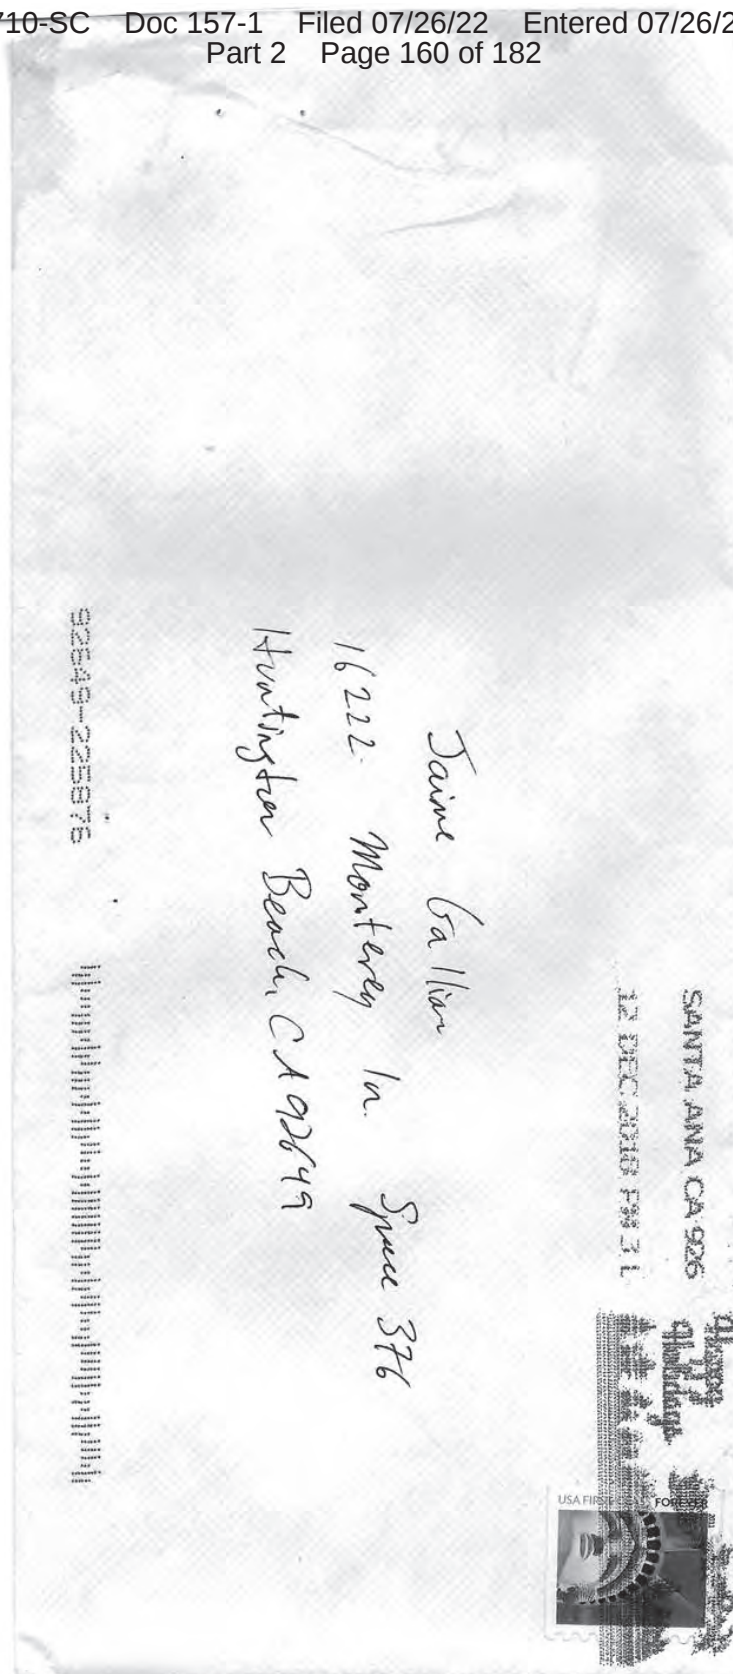 710-SC Doc 157-1 Filed 07/26/22 Entered 07/26/2
Part 2 Page 160 of 182
SANTA ANA CA 926
12 DEC 2018 PM 3 L
Happy
Holidays
USA FIRST FOREVER
Jaime Gallian
16222 Monterey ln. Space 376
Huntington Beach, CA 92649
92649-225876